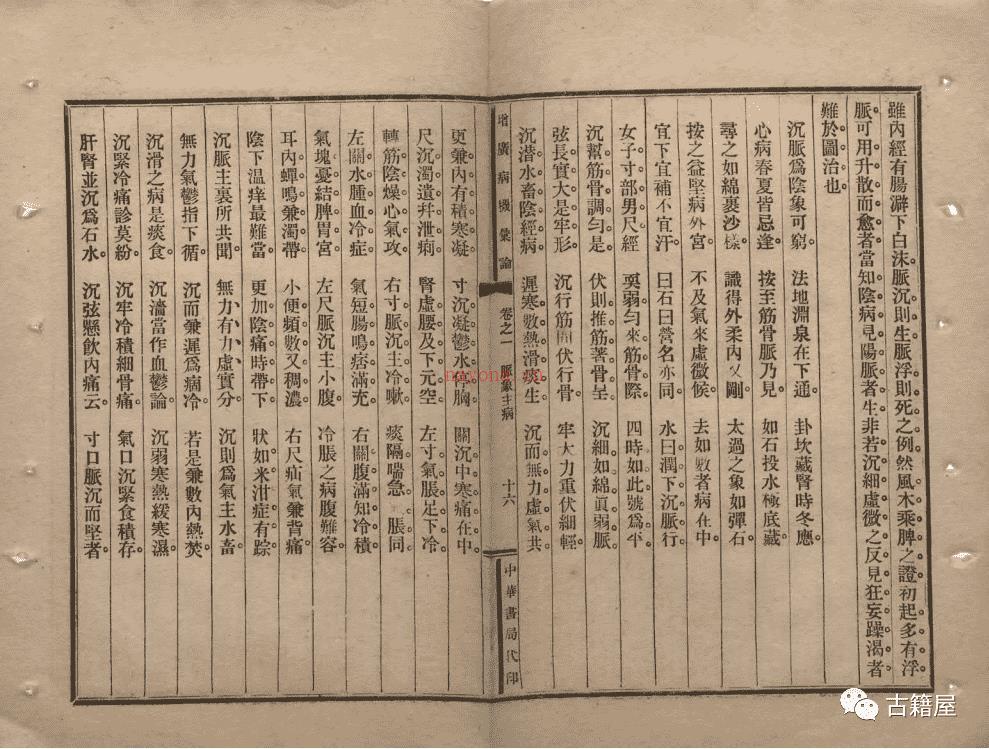 雖內經有腸澼下白沫脈沉則生脈浮則死之例。然風木乘脾之證。初起多有浮
脈。可用升散而愈者。當知陰病見陽脈者生。非若沉細虛微之反見狂妄躁渴者
難於圖治也。
沉脈爲陰象可窮　法地淵泉在下通　卦坎藏腎時冬應。
心病春夏皆忌逢　按至筋骨脈乃見　如石投水極底藏
尋之如綿裹沙樣　識得外柔內又剛　太過之象如彈石
按之益堅病外宮。　不及氣來虛微候　去如數者病在中
宜下宜補不宜汗　曰石曰營名亦同　水曰潤下沉脈行。
女子寸部男尺經　耎弱勻來筋骨際　四時如此號爲平。
沉幫筋骨調勻是　伏則推筋著骨呈　沉細如綿眞弱脈。
弦長實大是牢形　沉行筋間伏行骨　牢大力重伏細輕
沉潛水畜陰經病　遲寒數熱滑痰生　沉而無力虛氣共
增廣病機彙論　卷之一　脈象主病　十六　中華書局代印
更兼內有積寒凝　寸沉凝鬱水停胸　關沉中寒痛在中
尺沉濁遺幷泄痢　腎虛腰及下元空　左寸氣脹足下冷
轉筋陰燥心氣攻　右寸脈沉主冷嗽　痰隔喘急　脹同
左關水腫血冷症　氣短腸鳴痞滿充　右關腹滿知冷積
氣塊憂結脾胃宮　左尺脈沉主小腹　冷脹之病腹難容
耳內蟬鳴兼濁帶　小便頻數又稠濃　右尺疝氣兼背痛
陰下温痒最難當　更加陰痛時帶下　狀如米泔症有踪
沉脈主裏所共聞　無力有力虛實分　沉則爲氣主水畜
無力氣鬱指下循。　沉而兼遲爲痼冷　若是兼數內熱焚。
沉滑之病是痰食　沉濇當作血鬱論　沉弱寒熱緩寒濕
沉緊冷痛診莫紛　沉牢冷積細骨痛　氣口沉緊食積存
肝腎並沉爲石水　沉弦懸飮內痛云　寸口脈沉而堅者
nayona.cn
古籍屋